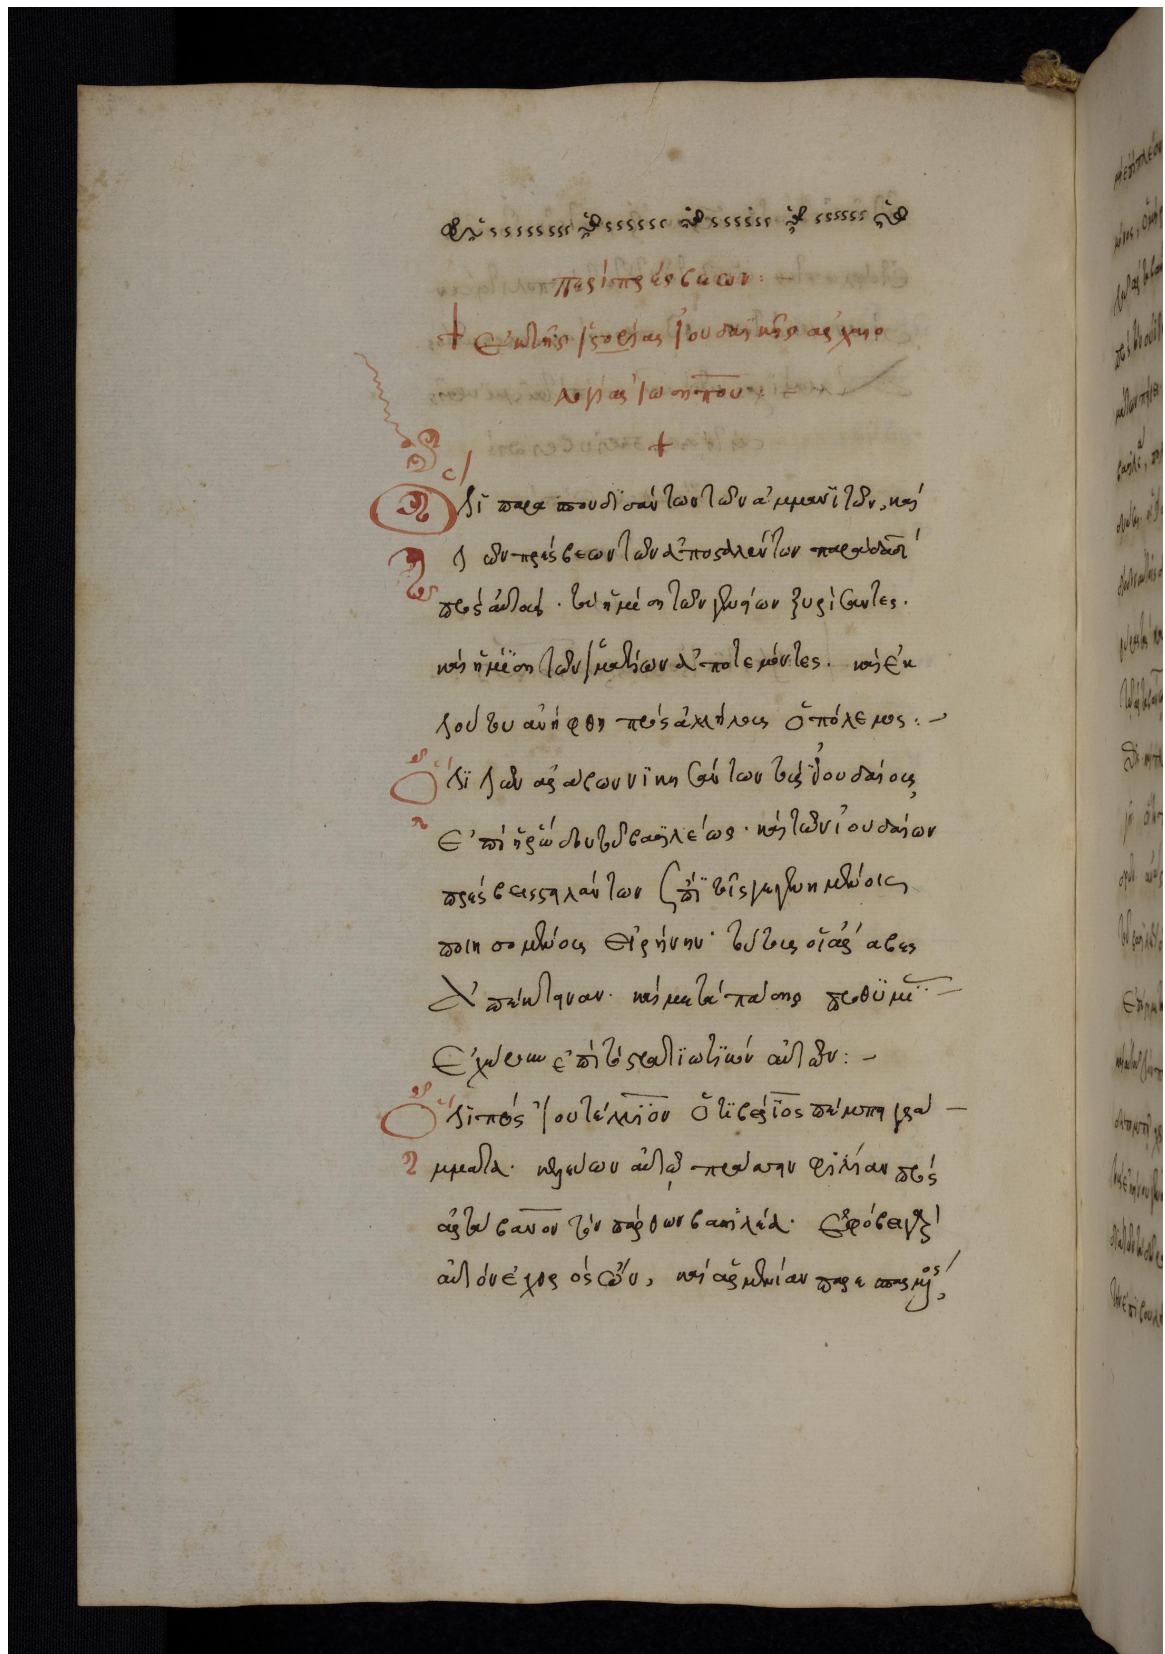 περὶ πρέσβεων:
+ Ἐκ τῆς ἱστορίας ἰουδαϊκῆς ἀρχαιο
λογίας ἰωσήπου:
+
Ὅτι παρασπονδησάντων τῶν ἀμμανιτῶν, καὶ
τῶν πρέσβεων τῶν ἀποσταλέντων παρὰ δαδ
πρὸς αὐτοὺς. τὰ ἡμίση τῶν γενείων ξυρίσαντες.
καὶ ἡμίση τῶν ἱματίων ἀποτεμόντες. καὶ ἐκ
τούτου ἀνήφθη πρὸς ἀλλήλους ὁ πόλεμος:-
Ὅτι τῶν ἀράβων νικησάντων τοὺς ἰουδαίους
ἐπὶ ἡρώδου τοῦ βασιλέως. καὶ τῶν ἰουδαίων
πρέσβεις στηλάντων ἐπὶ τοῖς γεγενημένοις
ποιησομένους εἰρήνην. τούτους οἱ ἄραβες
ἀπέκτηναν. καὶ μετὰ πάσης προθυμί
ἐχώρουν ἐπὶ τὸ στρατιωτικὸν αὐτῶν:-
Ὅτι πρὸς ἰουτέλλιον ὁ τιβέριος πέμπη γρά
μματα. κελεύων αὐτῷ πράττην φιλίαν πρὸς
ἀρτάβανον τὸν πάρθων βασιλέα. ἐφόβει γὰρ
αὐτὸν ἐχθρὸς ὢν, καὶ ἀρμενίαν παρεσπασμένος,